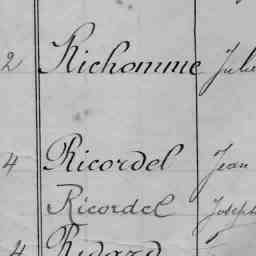 2 Richomme Julie
4 Ricordel Jean
Ricordel Joseph
4 Ridard